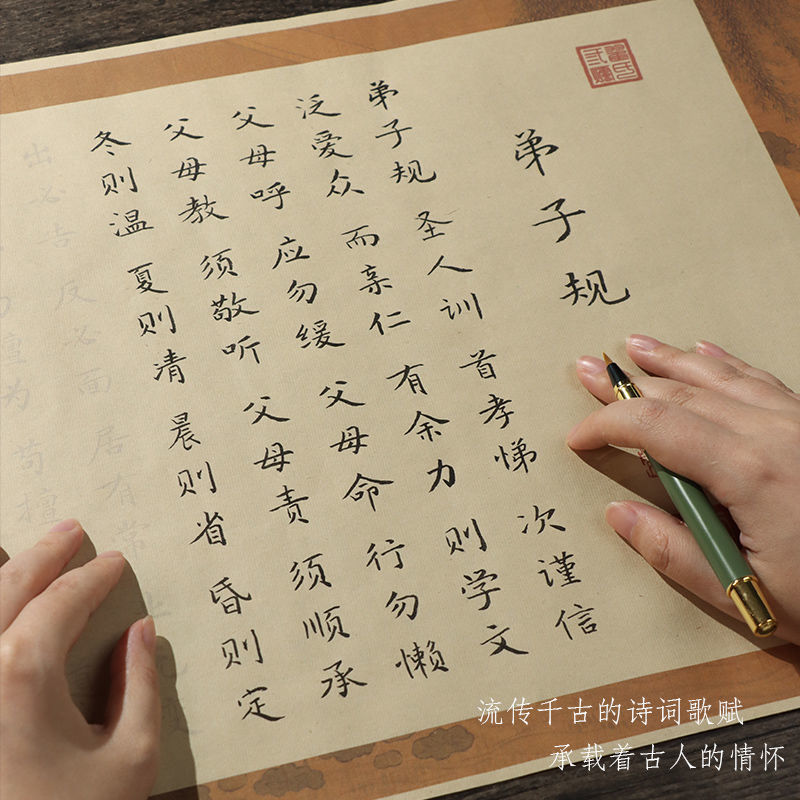 弟子规
弟子规 圣人训 首孝悌 次谨信
泛爱众 而亲仁 有余力 则学文
父母呼 应勿缓 父母命 行勿懒
父母教 须敬听 父母责 须顺承
冬则温 夏则清 晨则省 昏则定
出必告 反必面 居有常
擅为 苟擅
流传千古的诗词歌赋
承载着古人的情怀